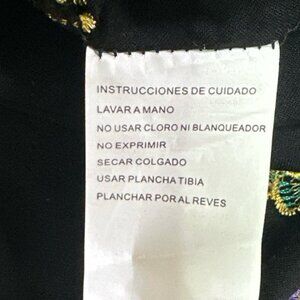 INSTRUCCIONES DE CUIDADO
LAVAR A MANO
NO USAR CLORO NI BLANQUEADOR
NO EXPRIMIR
SECAR COLGADO
USAR PLANCHA TIBIA
PLANCHAR POR AL REVES